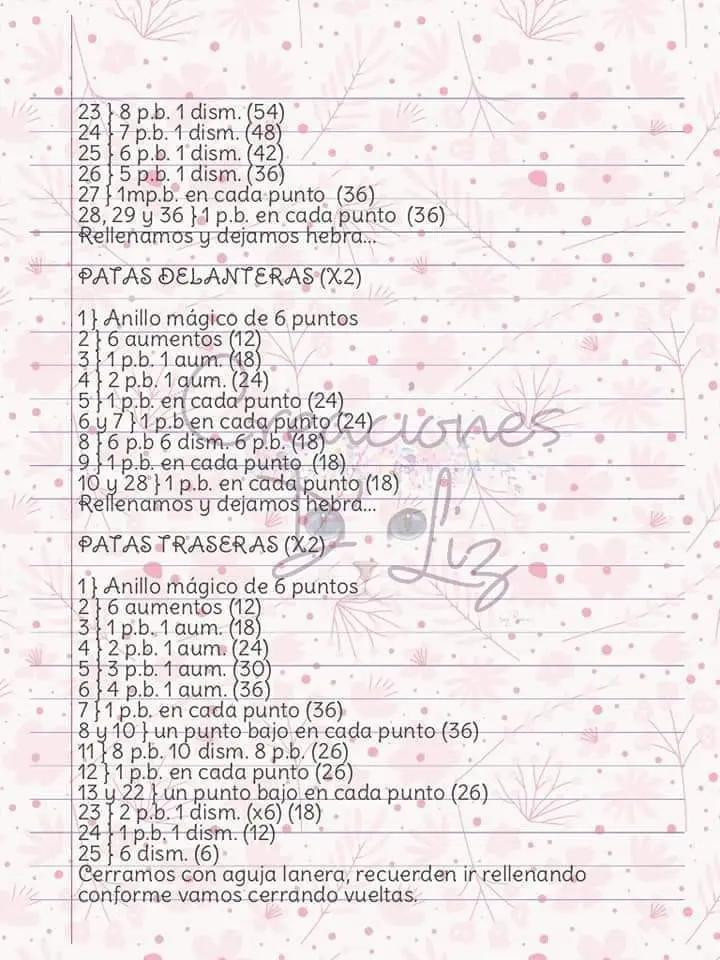 23 } 8 p.b. 1 dism. (54)
24 } 7 p.b. 1 dism. (48)
25 } 6 p.b. 1 dism. (42)
26 } 5 p.b. 1 dism. (36)
27 } 1mp.b. en cada punto (36)
28, 29 y 36 } 1 p.b. en cada punto (36)
Rellenamos y dejamos hebra...
PATAS DELANTERAS (X2)
1 } Anillo mágico de 6 puntos
2 } 6 aumentos (12)
3 } 1 p.b. 1 aum. (18)
4 } 2 p.b. 1 aum. (24)
5 } 1 p.b. en cada punto (24)
6 y 7 } 1 p.b en cada punto (24)
8 } 6 p.b 6 dism. 6 p.b. (18)
9 } 1 p.b. en cada punto (18)
10 y 28 } 1 p.b. en cada punto (18)
Rellenamos y dejamos hebra...
PATAS TRASERAS (X2)
1 } Anillo mágico de 6 puntos
2 } 6 aumentos (12)
3 } 1 p.b. 1 aum. (18)
4 } 2 p.b. 1 aum. (24)
5 } 3 p.b. 1 aum. (30)
6 } 4 p.b. 1 aum. (36)
7 } 1 p.b. en cada punto (36)
8 y 10 } un punto bajo en cada punto (36)
11 } 8 p.b. 10 dism. 8 p.b. (26)
12 } 1 p.b. en cada punto (26)
13 y 22 } un punto bajo en cada punto (26)
23 } 2 p.b. 1 dism. (x6) (18)
24 } 1 p.b. 1 dism. (12)
25 } 6 dism. (6)
Cerramos con aguja lanera, recuerden ir rellenando
conforme vamos cerrando vueltas.
Creaciones
Liz